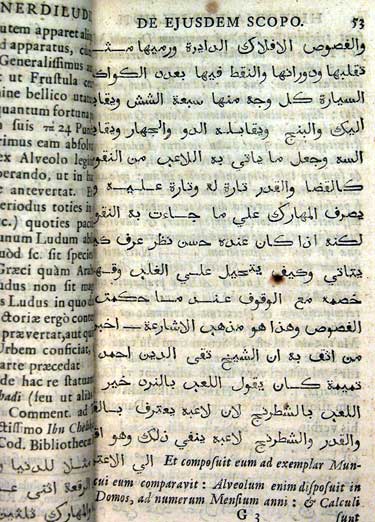 NERDILUDI
utem apparet ali
d apparatus, cu
Generalissimus
ut Frustula cer
ine bellico utan
quantum fortun
suis 24 Pun
rimus eam absolu
ex Alveolo leg
erando, ut in ha
e antevertat. E
eriodus toties in
c.) quoties pac
anum Ludum ab
uòd sc. sit specie
Græci quàm Ara
udus non sit mag
s Ludus in quo
ctoriæ ergò cont
prævertat, aut qu
Urbem conficiat,
arte præcedat
de hac re statu
badi (seu ut alii
Comment. ad
ctissimo Ibn Che
Cod. Bibliothec
مثلا للدنيا و
الرقعة اثني عش
والمهارك ثلثين
DE EJUSDEM SCOPO. 53
والفصوص الافلاك الدايرة ورميها مثـ
تقلبها ودورانها والنقط فيها بعدد الكواك
السيارة كل وجه منها سبعة الشش ويقابـ
اليك والبنج ويقابله الدو والجهار ويقابـ
السه وجعل ما ياتي به اللاعب من النقو
كالقضا والقدر تارة له وتارة عليه و
يصرف المهارك علي ما جاءت به النقو
لكنه اذا كان عنده حسن نظر عرف كي
يتاتي وكيف يتحيل علي الغلب وقـ
خصمه مع الوقوف عند ما حكمت
الفصوص وهذا هو مذهب الاشارعة ـ اخبر
من اثف به ان الشيخ تقي الدين احمد
تيمية كان يقول اللعب بالنرد خير
اللعب بالشطرنج لان لاعبه يعترف بالقـ
والقدر والشطرنج لاعبه ينفي ذلك وهو اقـ
الي الاعتز Et composuit eum ad exemplar Mun-
cui eum comparavit : Alveolum enim disposuit in
Domos, ad numerum Mensium anni : & Calculi
G 3 sunt